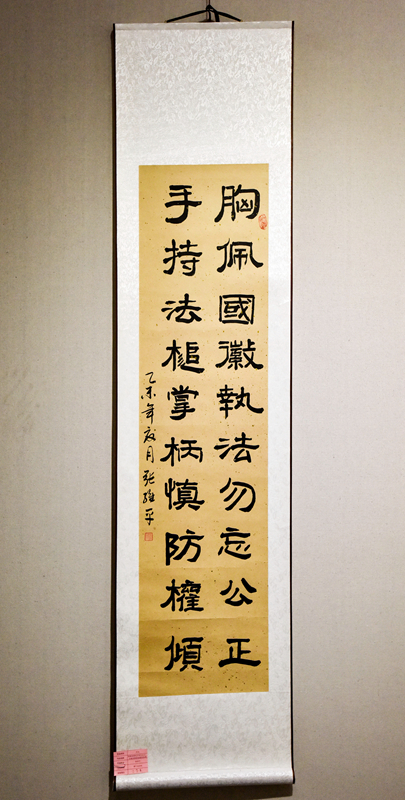 胸佩國徽執法勿忘公正
手持法槌掌柄慎防權傾
乙未年夏月張維平